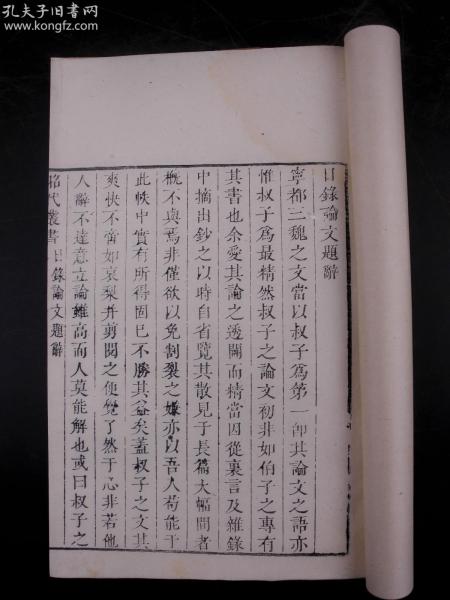 孔夫子旧书网
www.kongfz.com
日錄論文題辭
寧都三魏之文當以叔子爲第一卽其論文之語亦
惟叔子爲最精然叔子之論文初非如伯子之專有
其書也余愛其論之透闢而精當因從裏言及雜錄
中摘出鈔之以時自省覽其散見于長篇大幅間者
概不與焉非僅欲以免割裂之嫌亦以吾人苟能于
此帙中實有所得固已不勝其益矣蓋叔子之文其
爽快不啻如哀梨并剪閱之便覺了然于心非若他
人辭不達意立論雖高而人莫能解也或曰叔子之
昭代叢書 日錄論文題辭